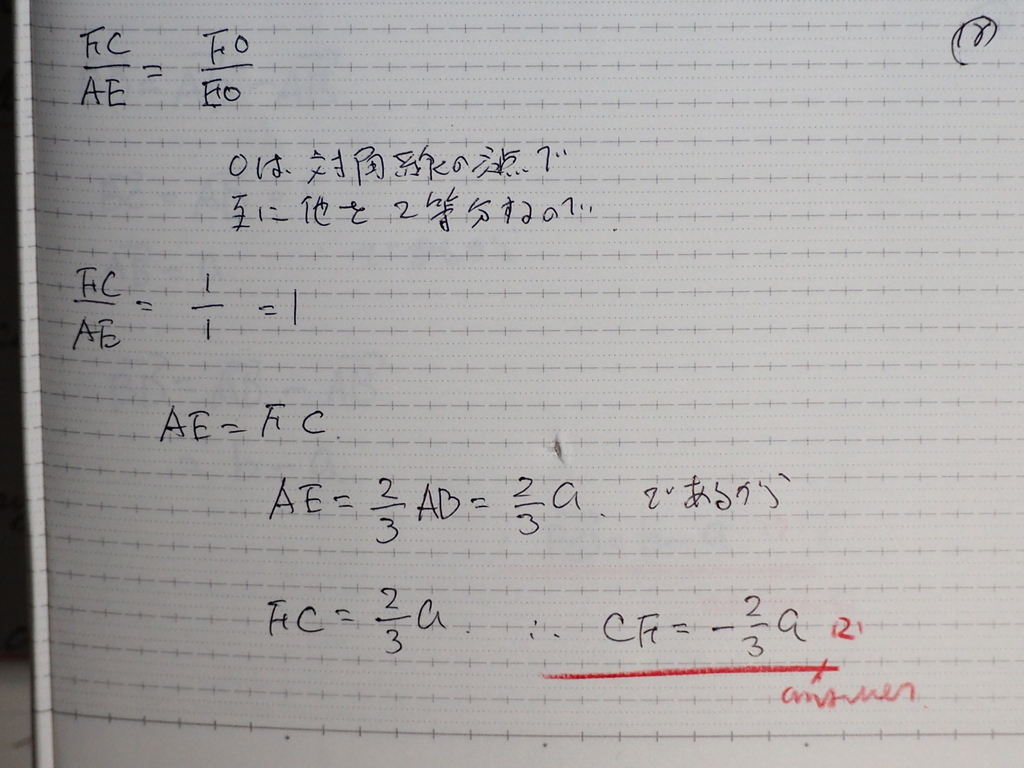 (8)
FC/AE = FO/EO
Oは対角線の交点で
互に他を2等分するので
FC/AE = 1/1 = 1
AE = FC.
AE = 2/3 AB = 2/3 a. であるから
FC = 2/3 a. ∴ CF = -2/3 a (2)
answer